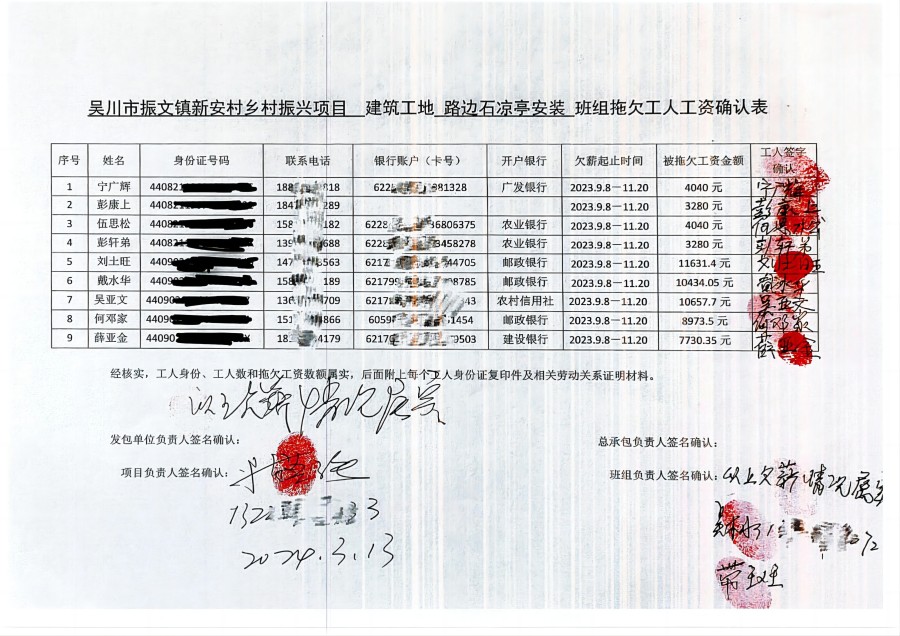 吴川市振文镇新安村乡村振兴项目 建筑工地 路边石凉亭安装 班组拖欠工人工资确认表
序号 姓名 身份证号码 联系电话 银行账户（卡号） 开户银行 欠薪起止时间 被拖欠工资金额 工人签字确认
1 宁广辉 44082 188 818 622 981328 广发银行 2023.9.8－11.20 4040 元
2 彭康上 44082 184 289 2023.9.8－11.20 3280 元
3 伍思松 44082 158 182 6228 6806375 农业银行 2023.9.8－11.20 4040 元
4 彭轩弟 44082 139 688 6228 3458278 农业银行 2023.9.8－11.20 3280 元
5 刘土旺 44090 147 3563 6217 44705 邮政银行 2023.9.8－11.20 11631.4 元
6 戴水华 44090 158 189 621799 08785 邮政银行 2023.9.8－11.20 10434.05 元
7 吴亚文 44090 136 709 6217 农村信用社 2023.9.8－11.20 10657.7 元
8 何邓家 44090 151 4866 6059 1454 邮政银行 2023.9.8－11.20 8973.5 元
9 薛亚金 44090 18 4179 6217 0503 建设银行 2023.9.8－11.20 7730.35 元
经核实，工人身份、工人数和拖欠工资数额属实，后面附上每个工人身份证复印件及相关劳动关系证明材料。
以上欠薪情况属实
发包单位负责人签名确认： 总承包负责人签名确认：
项目负责人签名确认： 班组负责人签名确认：以上欠薪情况属实
132 3
2024.3.13